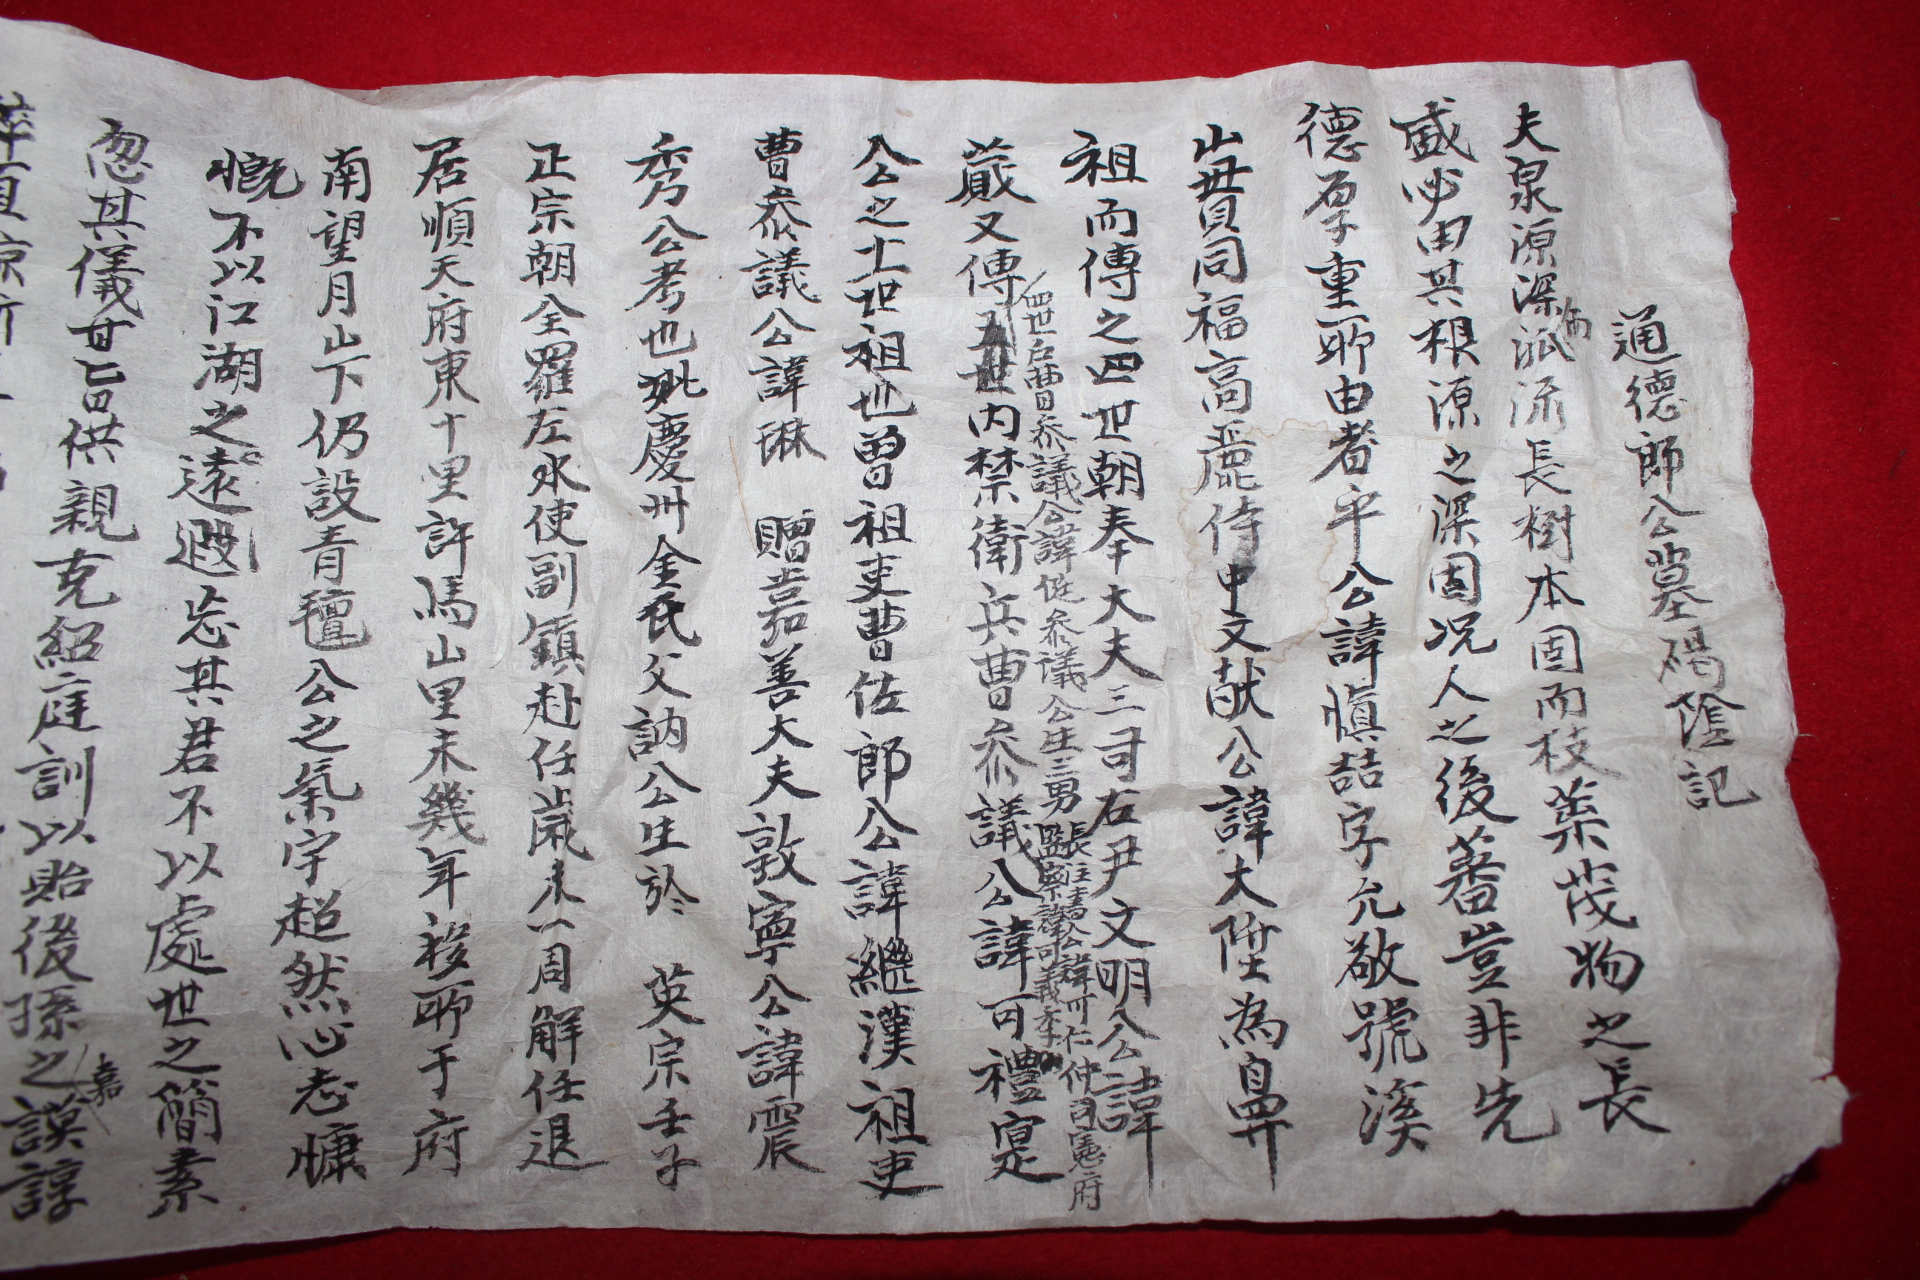 通德郎公墓碣陰記
夫泉源深而派流長樹本固而枝葉茂物之長
盛必由其根源之深固况人之後蕃豈非先
德厚重所由者乎公諱愼喆字允敬號溪
山貫同福高麗侍中文献公諱大陞為鼻
祖而傳之四世朝奉大夫三司右尹文明公諱
四世户曹叅議公諱侹叅議公生三男長 諱可仁仲司憲府
監察諱可義季
蕆又傳 世内禁衛兵曹叅議公諱可禮寔
公之十一世祖也曾祖吏曹佐郎公諱繼漢祖吏
曹叅議公諱琳 贈嘉善大夫敦寧公諱震
秀公考也妣慶州金氏父訥公生於 英宗壬子
正宗朝全羅左水使副鎮赴任歲未一周解任退
居順天府東十里許馬山里未幾年移所于府
南望月山下仍設青氊公之氣宇超然心志慷
慨不以江湖之遠遐忘其君不以處世之簡素
忽其儀甘旨供親克紹庭訓以貽後孫之嘉謨諄